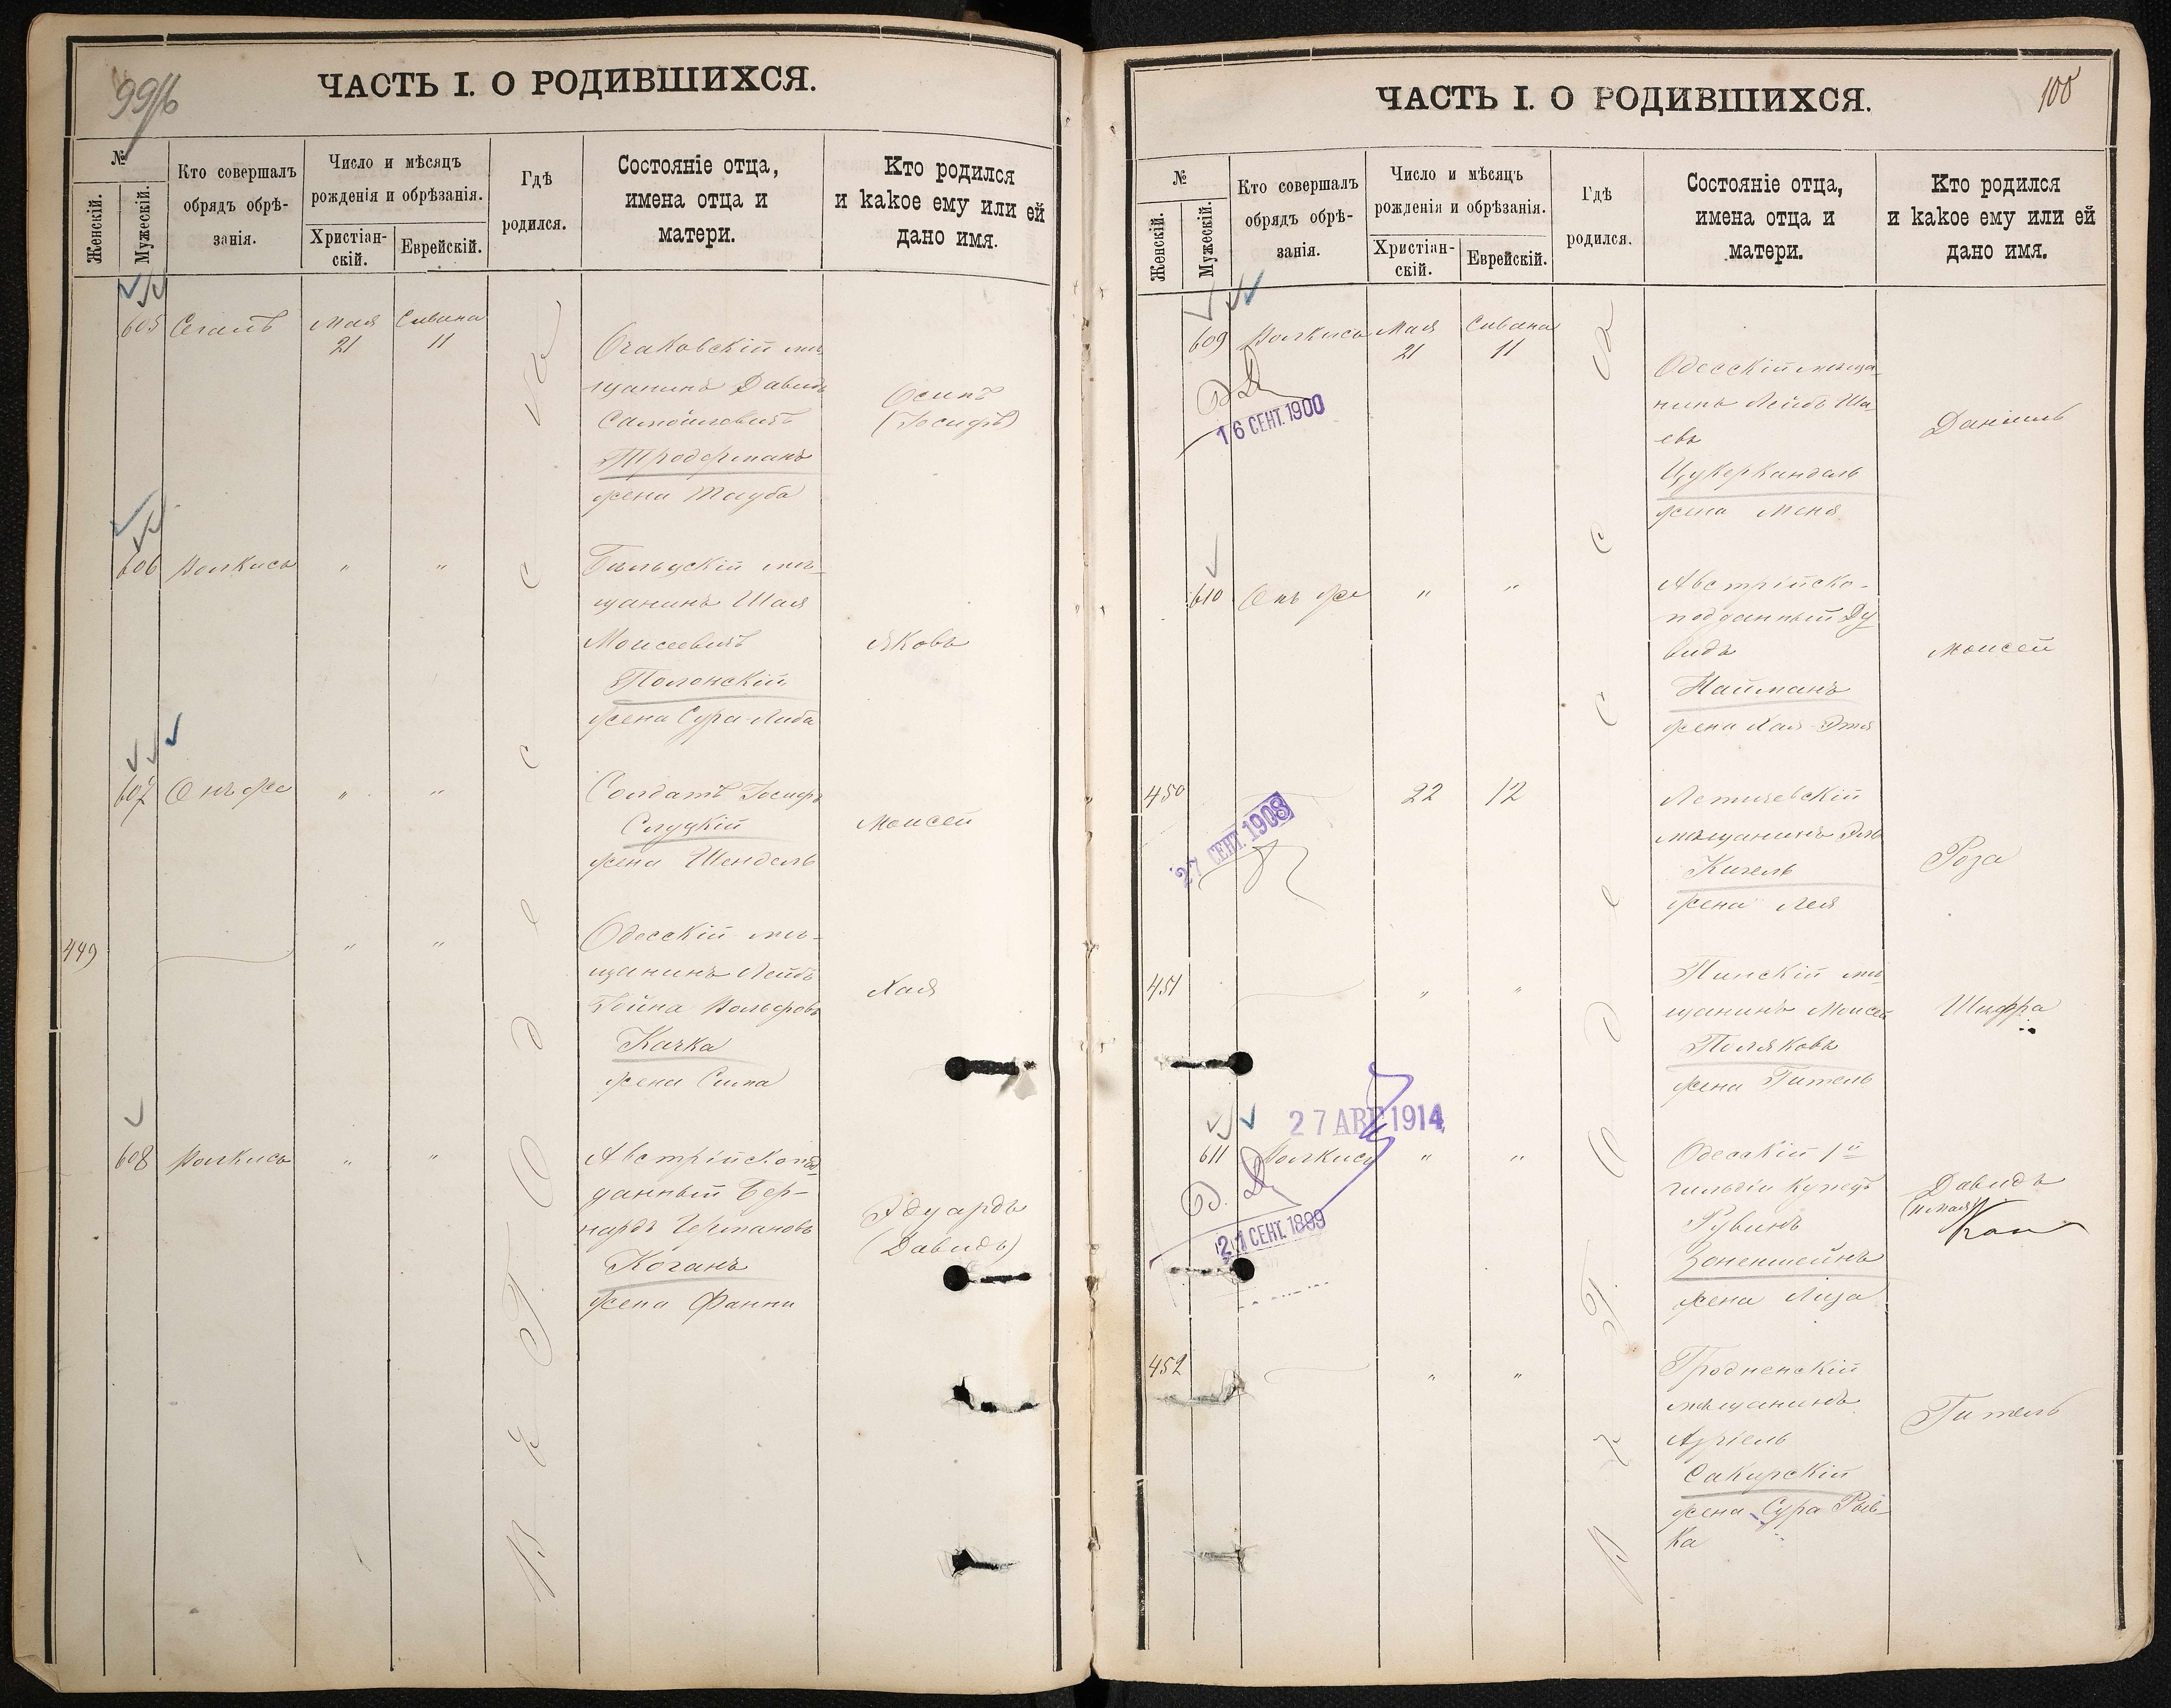 99/б
ЧАСТЬ I. О РОДИВШИХСЯ.
№
Женскій.
Мужескій.
Кто совершалъ
обрядъ обрѣ-
занія.
Число и мѣсяцъ
рожденія и обрѣзанія.
Христіан-
скій.
Еврейскій.
Гдѣ
родился.
Состояніе отца,
имена отца и
матери.
Кто родился
и какое ему или ей
дано имя.
В г. Одессѣ
605 Сегалъ Мая 21 Сивана 11
Очаковскій мѣ
щанинъ Давидъ
Самойловичъ
жена Тауба
Осипъ
(Іосифъ)
606 " "
щанинъ Шая
Моисеевичъ
Полонскій
жена Сура-Либа
Яковъ
607 Онъ же " "
Солдатъ Іосифъ
Слуцкій
жена Шендель
Моисей
449 " "
Одесскій мѣ-
щанинъ Лейбъ
Вольфовъ
Качка
жена Сима
Хая
608 " "
Австрійскопод
данный Бер-
нардъ Германовъ
Коганъ
жена Фанни
Эдуардъ
(Давидъ)
ЧАСТЬ I. О РОДИВШИХСЯ.
100
№
Женскій.
Мужескій.
Кто совершалъ
обрядъ обрѣ-
занія.
Число и мѣсяцъ
рожденія и обрѣзанія.
Христіан-
скій.
Еврейскій.
Гдѣ
родился.
Состояніе отца,
имена отца и
матери.
Кто родился
и какое ему или ей
дано имя.
В г. Одессѣ
609 Мая 21 Сивана 11
16 СЕНТ. 1900
Одесскій мѣща-
нинъ Лейбъ Ша-
евъ
Цукеркандель
жена Меня
Даніилъ
610 Онъ же " "
Австрійско-
подданный Ду
видъ
Найманъ
жена Хая-Этя
Моисей
450 22 12
27 СЕНТ. 1908
Летичевскій
мѣщанинъ
Кигель
жена Лея
Роза
451 " "
Пинскій мѣ
щанинъ Моисей
Поляковъ
жена Гитель
Шифра
27 АВГ 1914
611 " "
21 СЕНТ. 1899
Одесскій 1й
гильдіи купецъ
Рувинъ
Зоненшейнъ
жена Лиза
Давидъ
452 " "
Гродненскій
мѣщанинъ
Азріель
Сакирскій
жена Сура Рив-
ка
Гитель